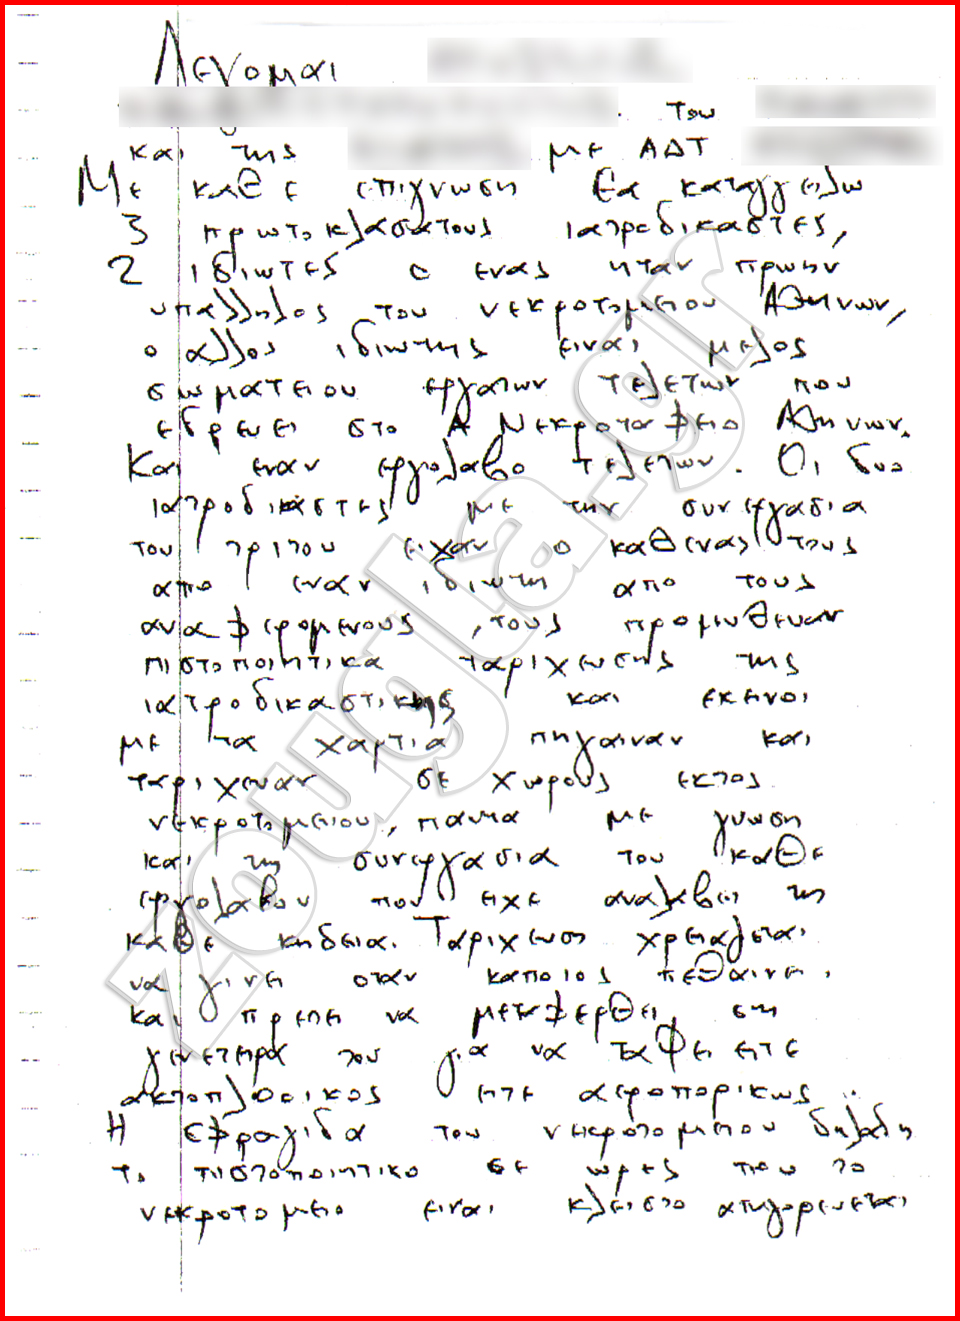 Λεγομαι
του
και της με ΑΔΤ
Με καθε επιγνωση θα καταγγειλω
3 πρωτοκλασατους ιατροδικαστες,
2 ιδιωτες ο ενας ηταν πρωην
υπαλληλος του νεκροτομειου Αθηνων,
ο αλλος ιδιωτης ειναι μελος
σωματειου εργατων τελετων που
εδρευει στο Α Νεκροταφειο Αθηνων.
Και εναν εργολαβο τελετων. Οι δυο
ιατροδικαστες με την συνεργασια
του τριτου ειχαν ο καθενας τους
απο εναν ιδιωτη απο τους
αναφερομενους, τους προμηθευαν
πιστοποιητικα ταριχευσης της
ιατροδικαστικης και εκεινοι
με τα χαρτια πηγαιναν και
ταριχευαν σε χωρους εκτος
νεκροτομειου, παντα με γνωση
και τη συνεργασια του καθε
εργολαβου που ειχε αναλαβει τη
καθε κηδεια. Ταριχευση χρειαζεται
να γινει οταν καποιος πεθαινει
και πρεπει να μεταφερθει στη
γενετειρα του για να ταφει ειτε
ακτοπλοοικος ειτε αεροπορικως..
Η σφραγιδα του νεκροτομειου δηλαδη
το πιστοποιητικο σε ωρες που το
νεκροτομειο ειναι κλειστο απαγορευεται
zougla.gr